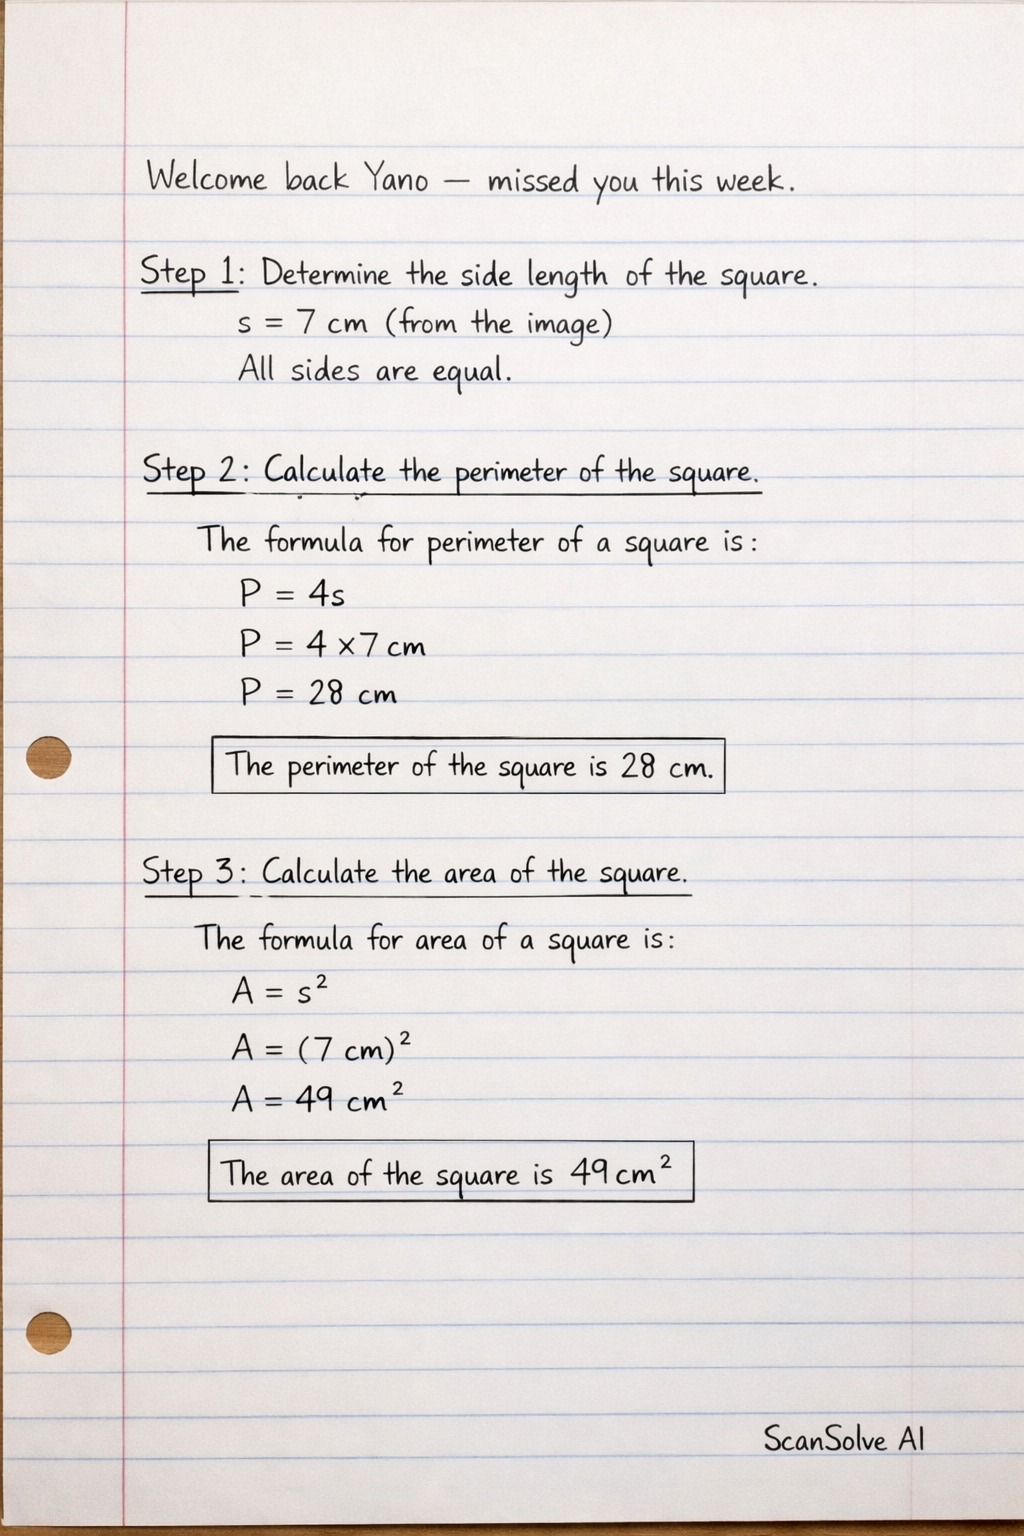 Welcome back Yano — missed you this week.
Step 1: Determine the side length of the square.
s = 7 cm (from the image)
All sides are equal.
Step 2: Calculate the perimeter of the square.
The formula for perimeter of a square is:
P = 4s
P = 4 × 7 cm
P = 28 cm
The perimeter of the square is 28 cm.
Step 3: Calculate the area of the square.
The formula for area of a square is:
A = s²
A = (7 cm)²
A = 49 cm²
The area of the square is 49 cm²
ScanSolve AI